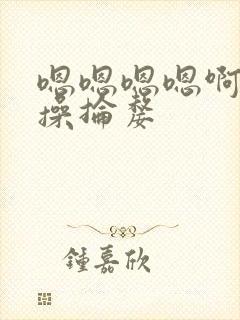 嗯嗯嗯嗯啊
操抢婺
鍾嘉欣